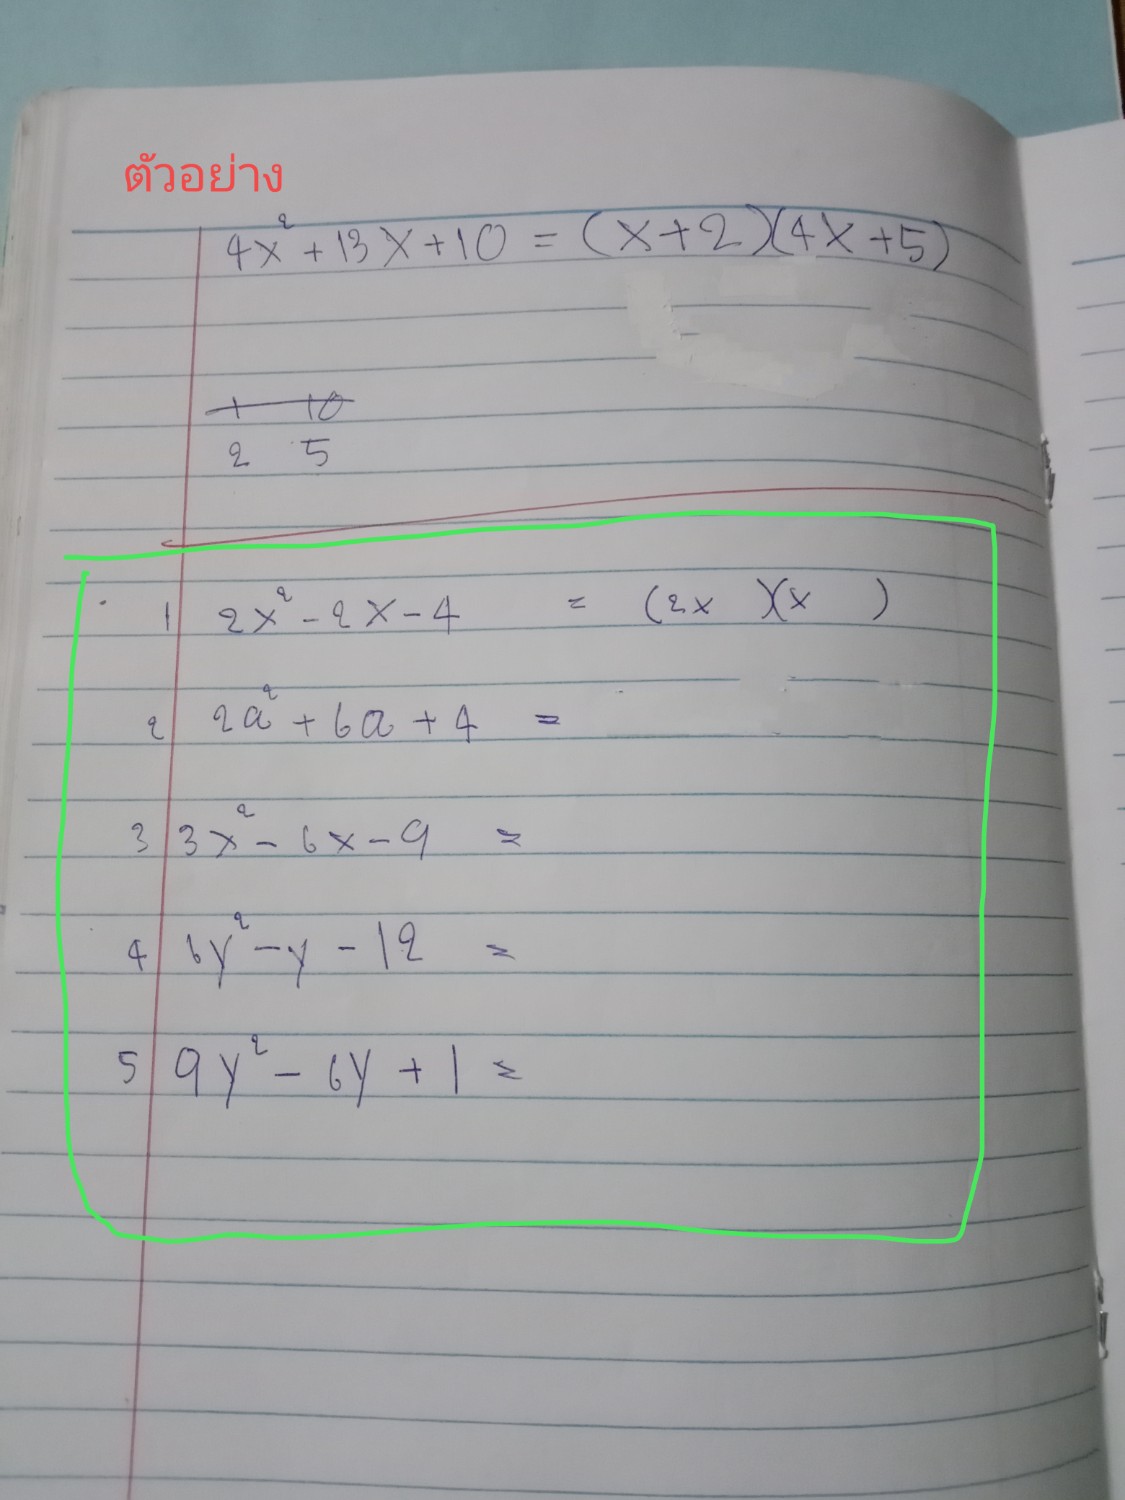 ตัวอย่าง
4x² + 13x + 10 = (x + 2)(4x + 5)
1 10
2 5
1 2x² - 2x - 4 = (2x )(x )
2 2a² + 6a + 4 =
3 3x² - 6x - 9 =
4 6y² - y - 12 =
5 9y² - 6y + 1 =